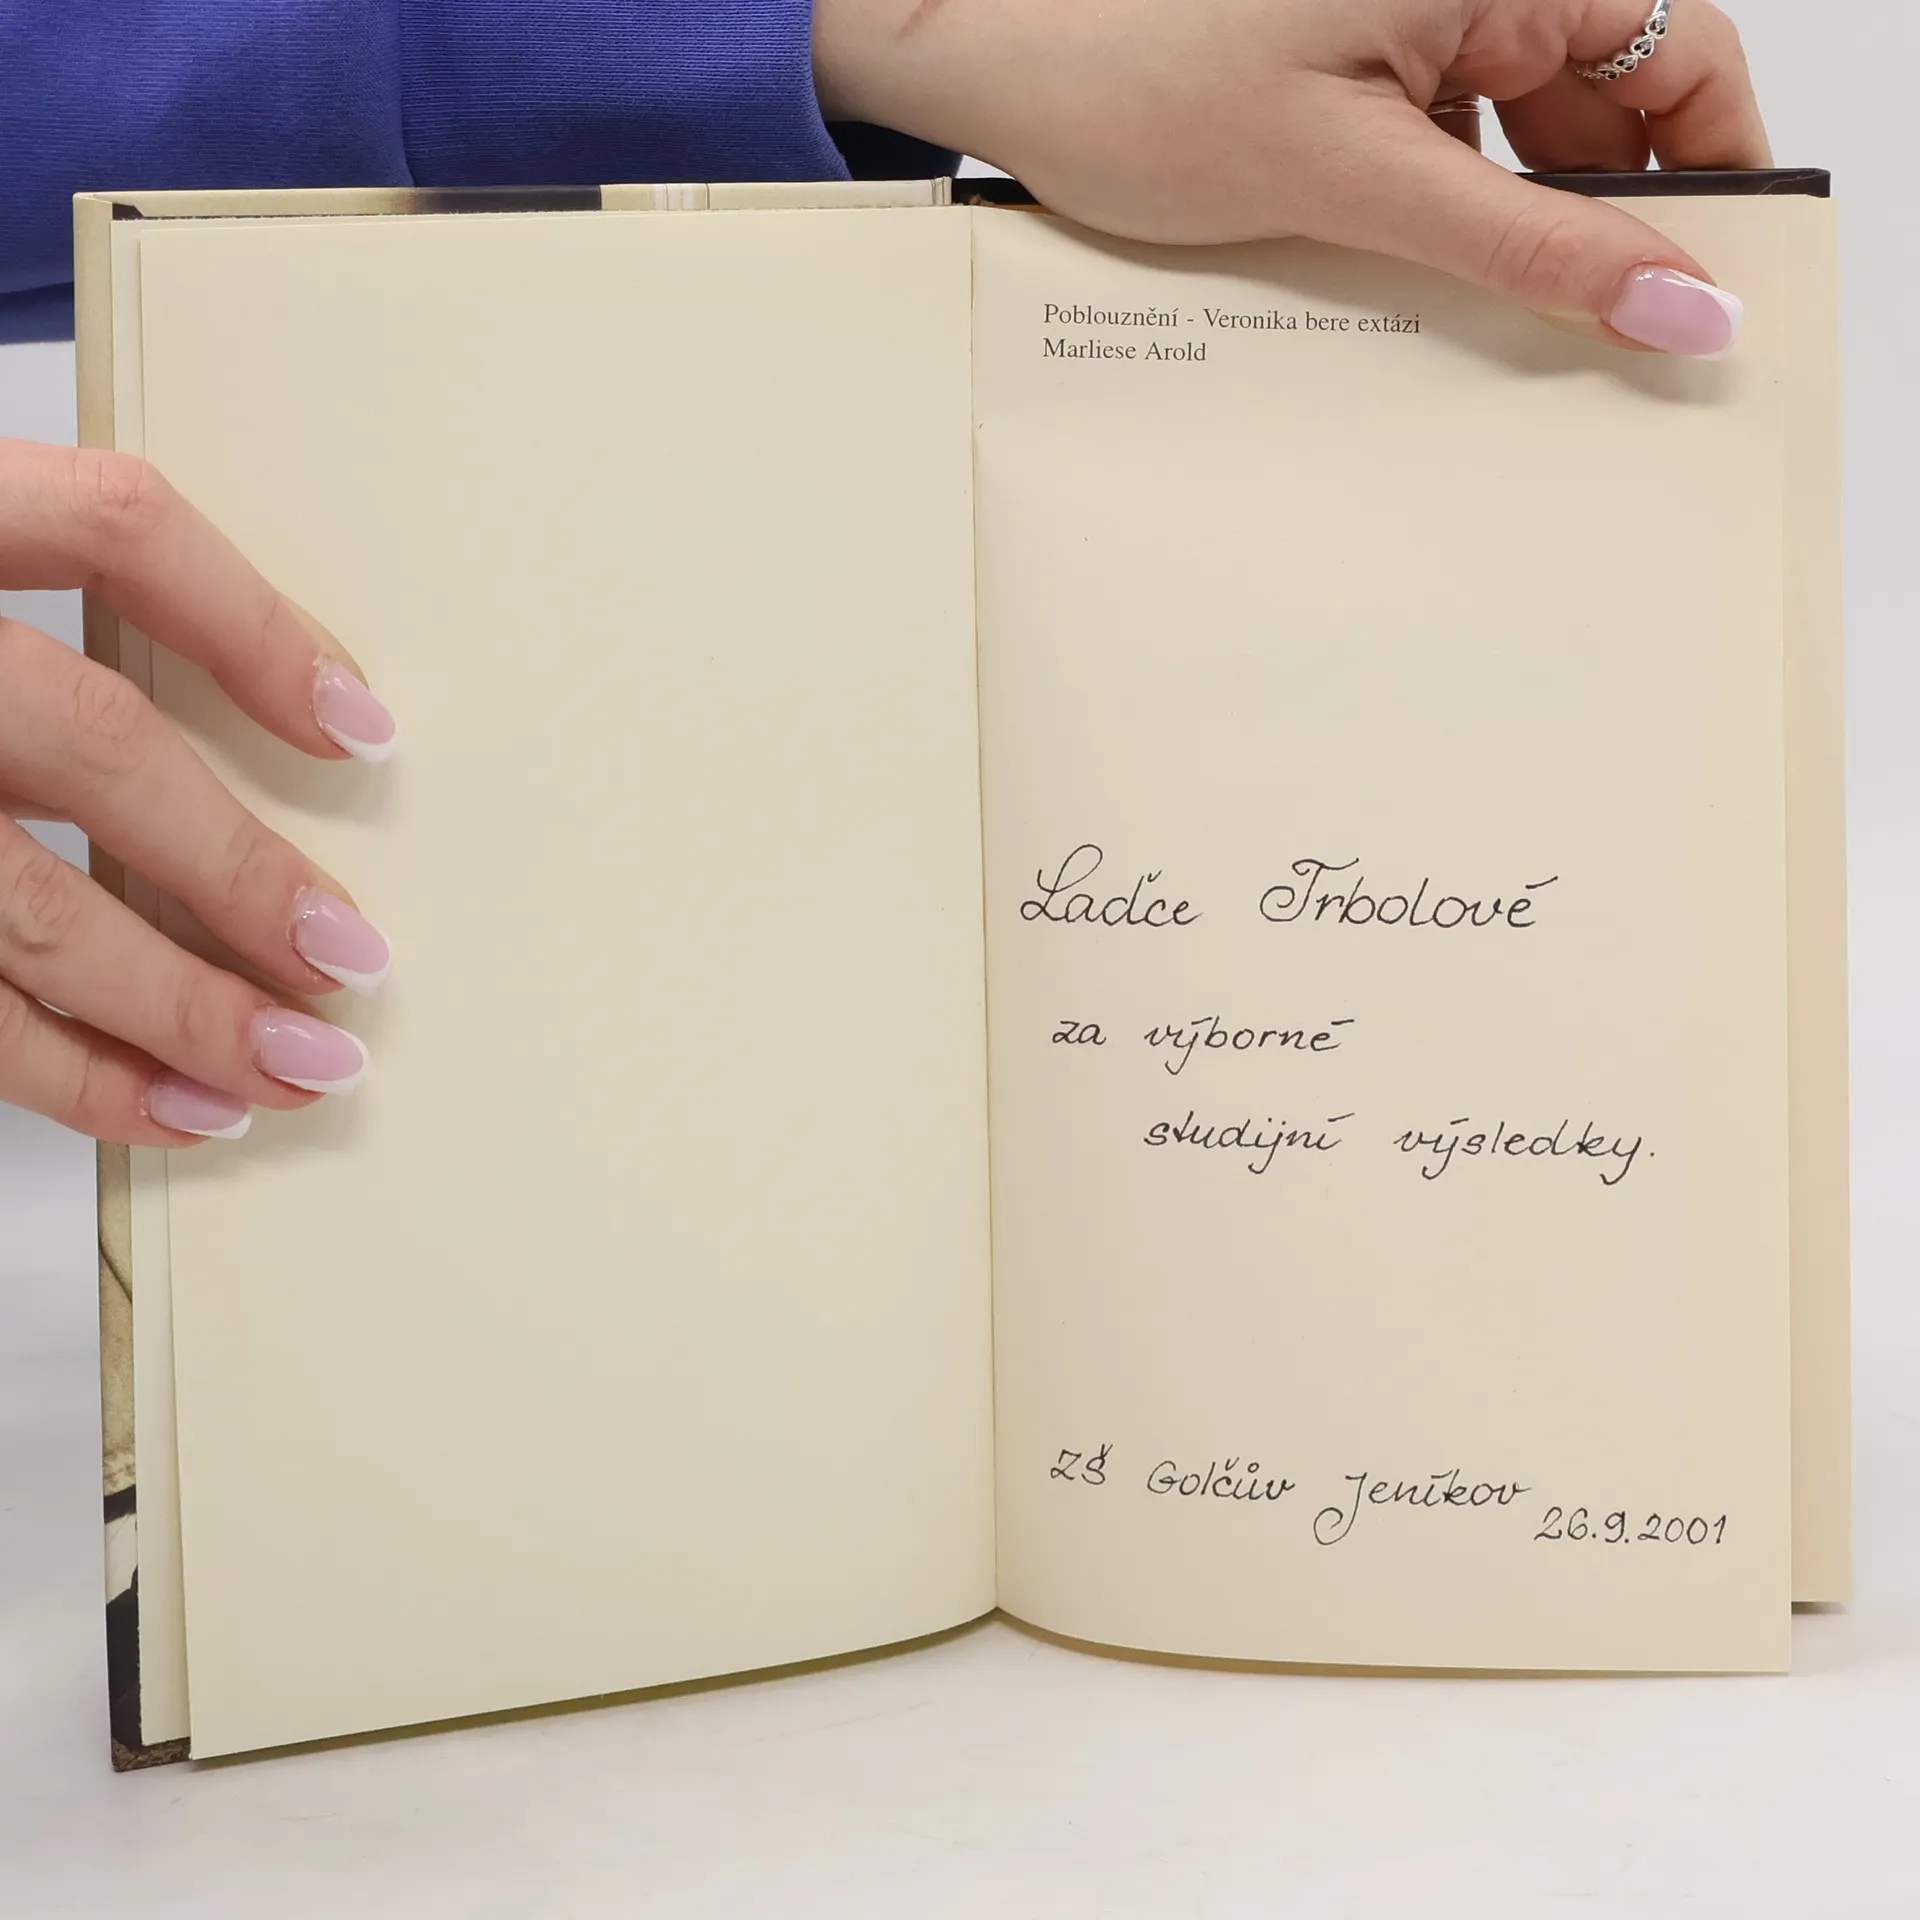 Poblouznění - Veronika bere extázi
Marliese Arold
Laďce Trbolové
za výborné
studijní výsledky.
ZŠ Golčův Jeníkov
26.9.2001